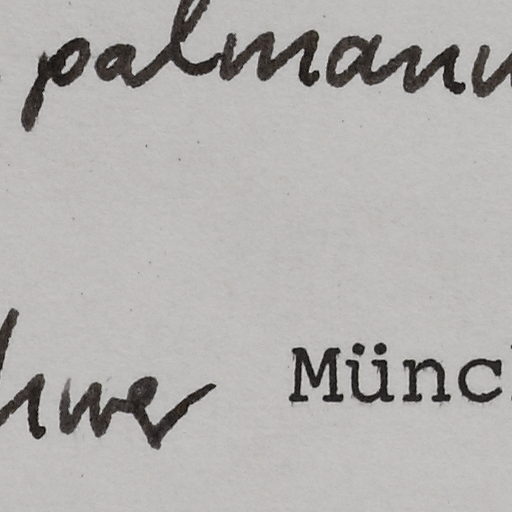 palmann
hwer Münch